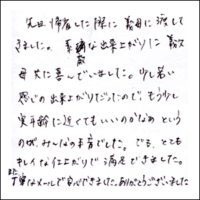 先日帰省した際に義母に渡して
きました。素敵な出来上がりに義父
母大に喜んでいました。少し若い
感じの出来上がりだったので、もう少し
実年齢に近くてもいいのかなぁという
のが、みんなの本音でした。でも、とても
キレイな仕上がりで満足できました。
丁寧なメールで安心できました。ありがとうございました